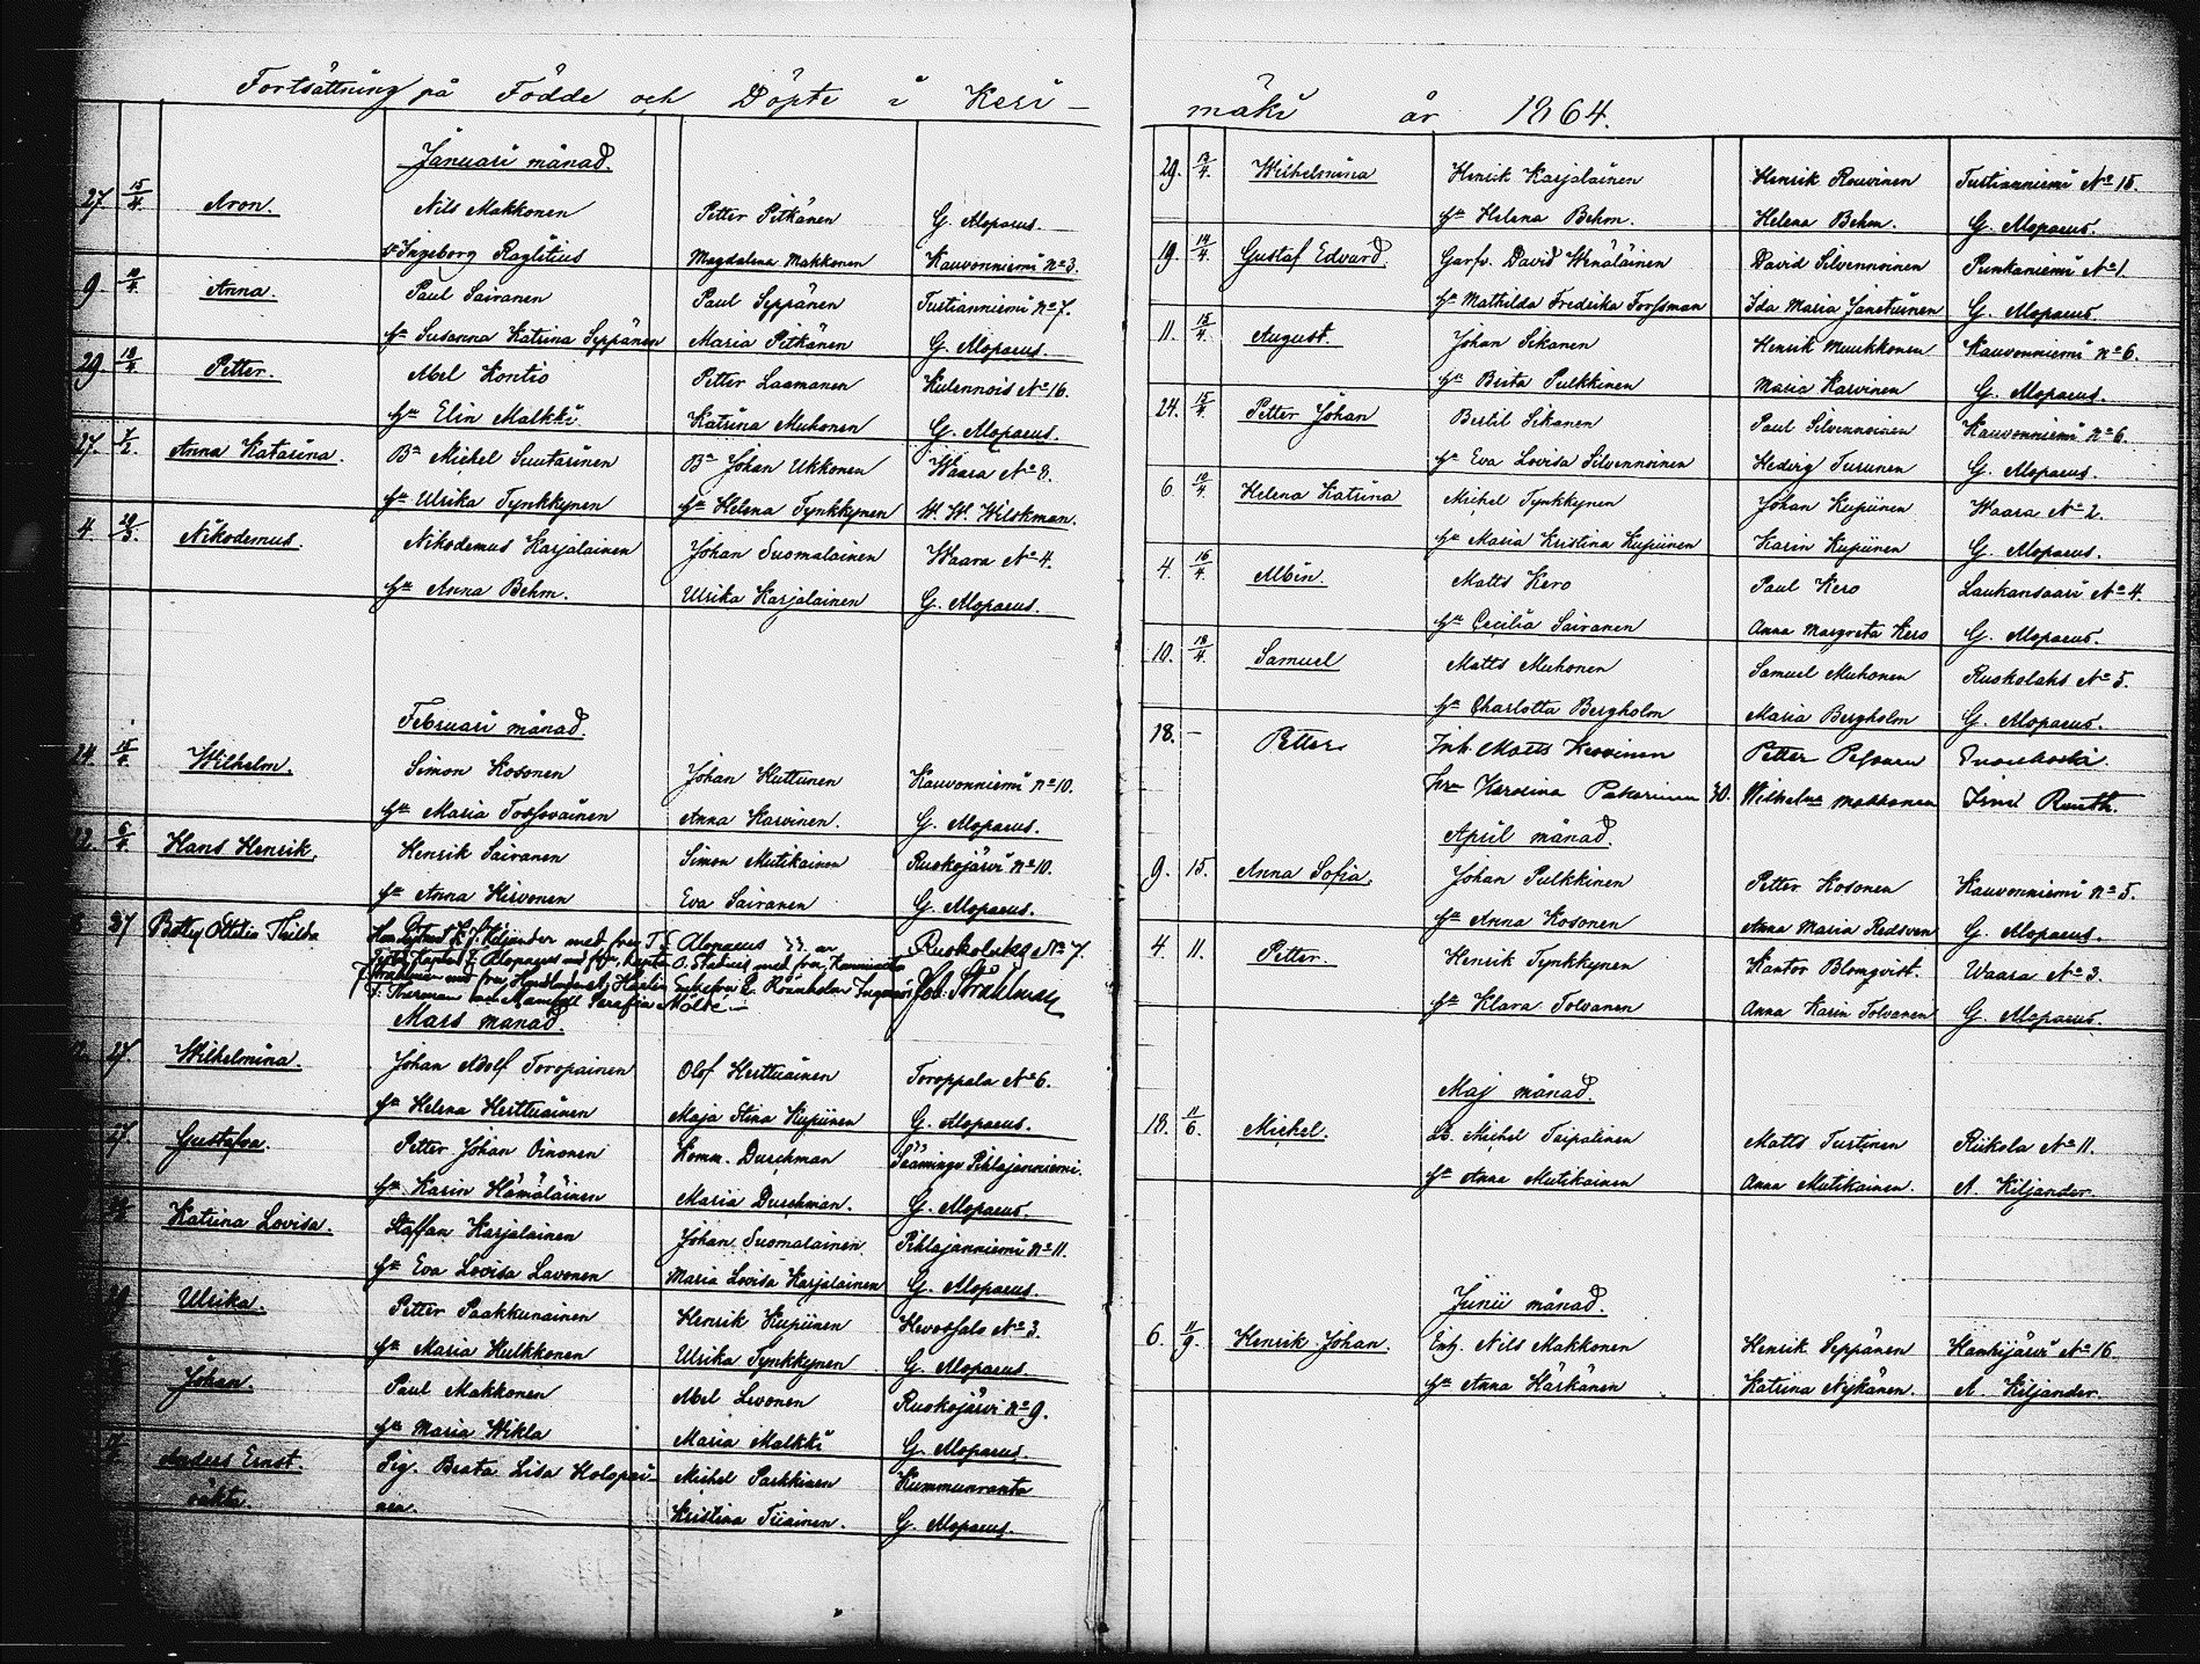 Fortsättning på Födde och Döpte i Keri-
Januari månad.
27. 15/4. Aron. Nils Makkonen Petter Pitkänen G. Alopaeus.
Ingeborg Raglitius Magdalena Makkonen Kauvonniemi No 3.
9 10/4. Anna. Paul Sairanen Paul Seppänen Tustianniemi No 7.
hu Susanna Katrina Seppänen Maria Pitkänen G. Alopaeus.
29. 18/4. Petter. Abel Kontio Petter Laamanen Kulennois No 16.
hu Elin Malkki Katrina Muhonen G. Alopaeus.
27. 7/2. Anna Katarina. Bn Michel Suutarinen Bn Johan Ukkonen Waara No 8.
hu Ulrika Tynkkynen hu Helena Tynkkynen W. W. Wilskman.
4 28/3. Nikodemus. Nikodemus Karjalainen Johan Suomalainen Waara No 4.
hu Anna Behm. Ulrika Karjalainen G. Alopaeus.
Februari månad.
24. 15/4. Wilhelm. Simon Kosonen Johan Kuttunen Kauvonniemi No 10.
hu Maria Torssovainen Anna Karvinen. G. Alopaeus.
12. 6/4. Hans Henrik. Henrik Sairanen Simon Mutikainen Ruokojärvi No 10.
hu Anna Hirvonen Eva Sairanen G. Alopaeus.
27 Betty Ottilia Thilda Kiljander med fru T. S. Alopaeus 33 år Ruokolaks No 7.
Alopaeus med fru, O. Stadius med fru,
med fru, L. Rönnholm Joh. Stråhlman
F. Thurman Mamsell Serafia Molde -
Mars månad.
27. Wilhelmina. Johan Adolf Toropainen Olof Herttuainen Toroppala No 6.
hu Helena Herttuainen Maja Stina Kupiinen G. Alopaeus.
27. Gustafva. Petter Johan Oinonen Komm. Duschman Sääminge Pihlajanniemi.
hu Karin Hämäläinen Maria Duschman. G. Alopaeus.
Katrina Lovisa. Staffan Karjalainen Johan Suomalainen Pihlajanniemi No 11.
hu Eva Lovisa Lavonen Maria Lovisa Karjalainen G. Alopaeus.
Ulrika. Petter Paakkunainen Henrik Kupiinen Hevossalo No 3.
hu Maria Hulkkonen Ulrika Tynkkynen G. Alopaeus.
Johan. Paul Makkonen Abel Levonen Ruokojärvi No 9.
hu Maria Wikla Maria Malkki G. Alopaeus.
Anders Ernst. Pig. Beata Lisa Holopai- Michel Parkkinen Kummunranta
oäkta. nen. Kristina Tiainen. G. Alopaeus.
mäki år 1864.
29. 13/4. Wilhelmina Henrik Karjalainen Henrik Rouvinen Tustianniemi No 15.
hu Helena Behm. Helena Behm. G. Alopaeus.
19. 14/4. Gustaf Edvard. Garfv. David Winäläinen David Silvennoinen Punkaniemi No 1
hu Mathilda Fredrika Forssman Ida Maria Janstuinen G. Alopaeus.
11. 15/4. August. Johan Sikanen Henrik Muukkonen Kauvonniemi No 6.
hu Brita Pulkkinen Maria Karvinen G. Alopaeus.
24. 15/4. Petter Johan Bertil Sikanen Paul Silvennoinen Kauvonniemi No 6.
hu Eva Lovisa Silvennoinen Hedvig Turunen G. Alopaeus.
6. 10/4. Helena Katrina Michel Tynkkynen Johan Kupiinen Waara No 2.
hu Maria Kristina Kupiinen Karin Kupiinen G. Alopaeus.
4. 16/4. Albin. Matts Kero Paul Kero Laukansaari No 4.
hu Cecilia Sairanen Anna Margreta Kero G. Alopaeus.
10. 18/4. Samuel Matts Muhonen Samuel Muhonen Ruokolaks No 5.
hu Charlotta Bergholm Maria Bergholm G. Alopaeus.
18. - Petter Inh. Matts Kervinen Petter
Karolina Pakarinen 30. Wilhelm Makkonen
April månad.
9. 15. Anna Sofia. Johan Pulkkinen Petter Kosonen Kauvonniemi No 5.
hu Anna Kosonen Anna Maria Redsven G. Alopaeus.
4. 11. Petter. Henrik Tynkkynen Kantor Blomqvist. Waara No 3.
hu Klara Tolvanen Anna Karin Tolvanen G. Alopaeus.
Maj månad.
18. 11/6. Michel. Lb. Michel Taipalinen Matts Tustinen Riikola No 11.
hu Anna Mutikainen Anna Mutikainen. A. Kiljander.
Junii månad.
6. 11/9. Henrik Johan. Inh. Nils Makkonen Henrik Seppänen Kankijärvi No 16
hu Anna Härkänen Katrina Nykänen. A. Kiljander.